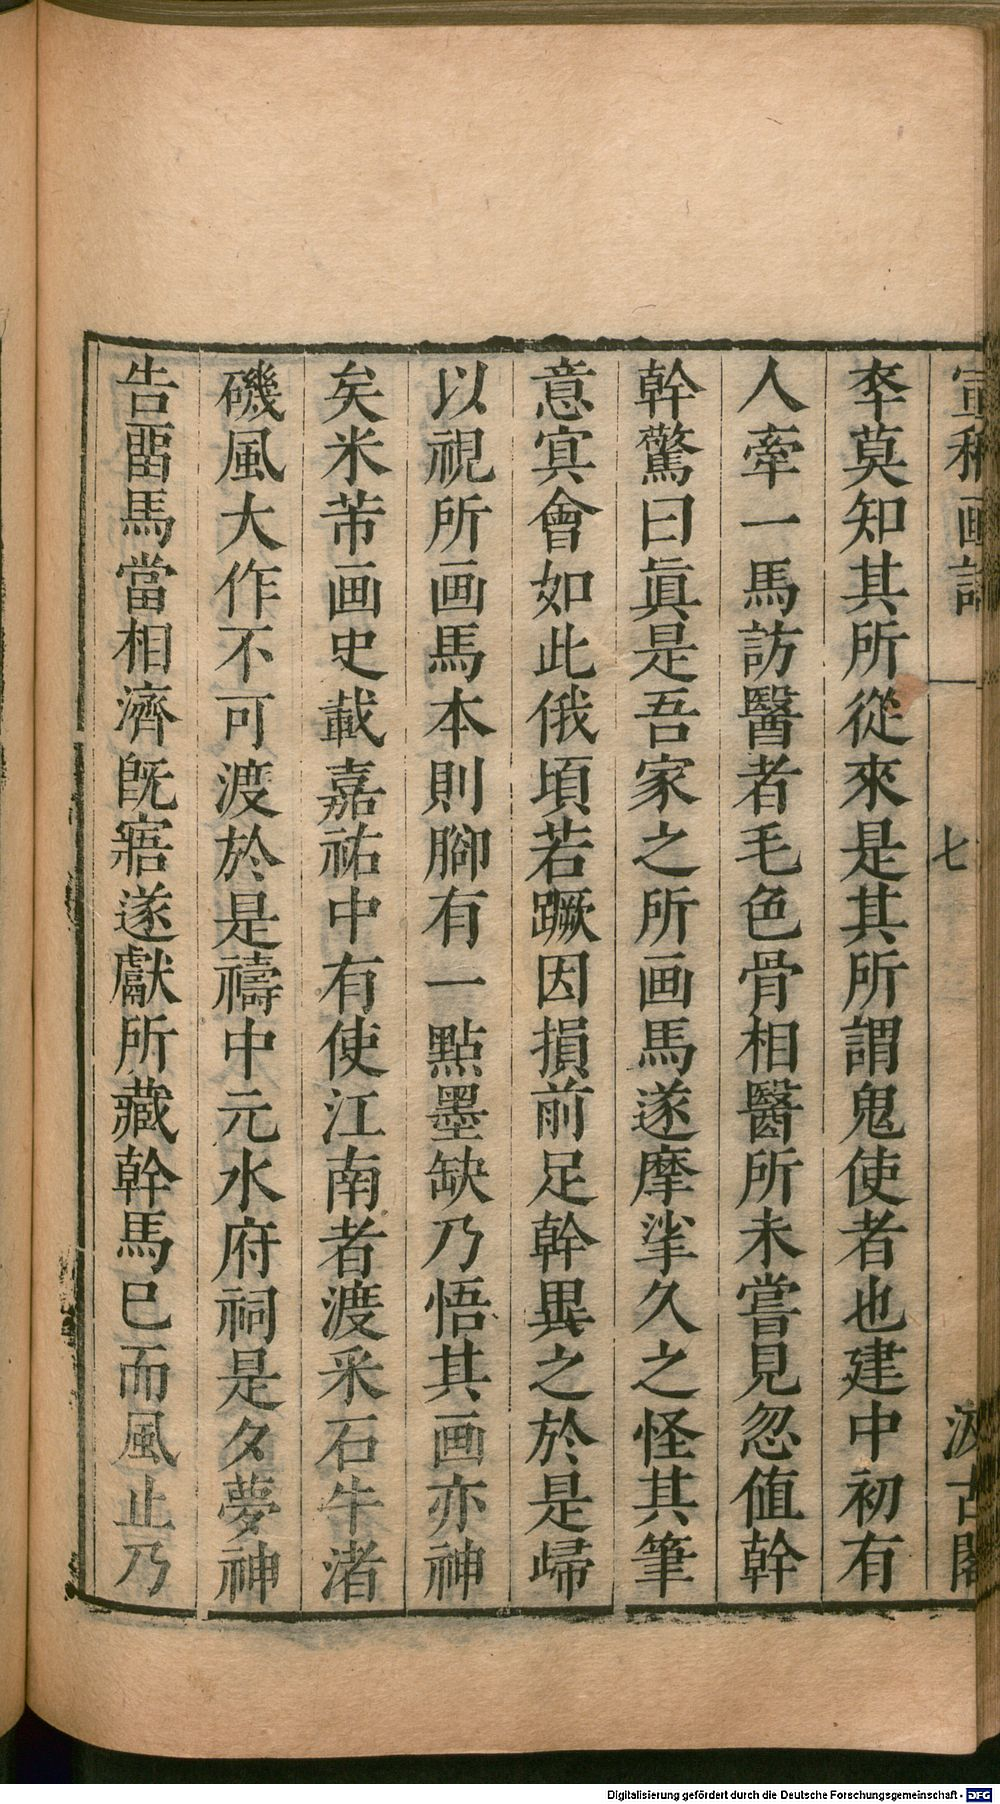 宣和画譜 七 汲古閣
卒莫知其所從來是其所謂鬼使者也建中初有
人牽一馬訪醫者毛色骨相醫所未嘗見忽值幹
幹驚曰眞是吾家之所画馬遂摩挲久之怪其筆
意冥會如此俄頃若蹶因損前足幹異之於是歸
以視所画馬本則腳有一點墨缺乃悟其画亦神
矣米芾画史載嘉祐中有使江南者渡采石牛渚
磯風大作不可渡於是禱中元水府祠是夕夢神
告畱馬當相濟旣寤遂獻所藏幹馬巳而風止乃
Digitalisierung gefördert durch die Deutsche Forschungsgemeinschaft - DFG